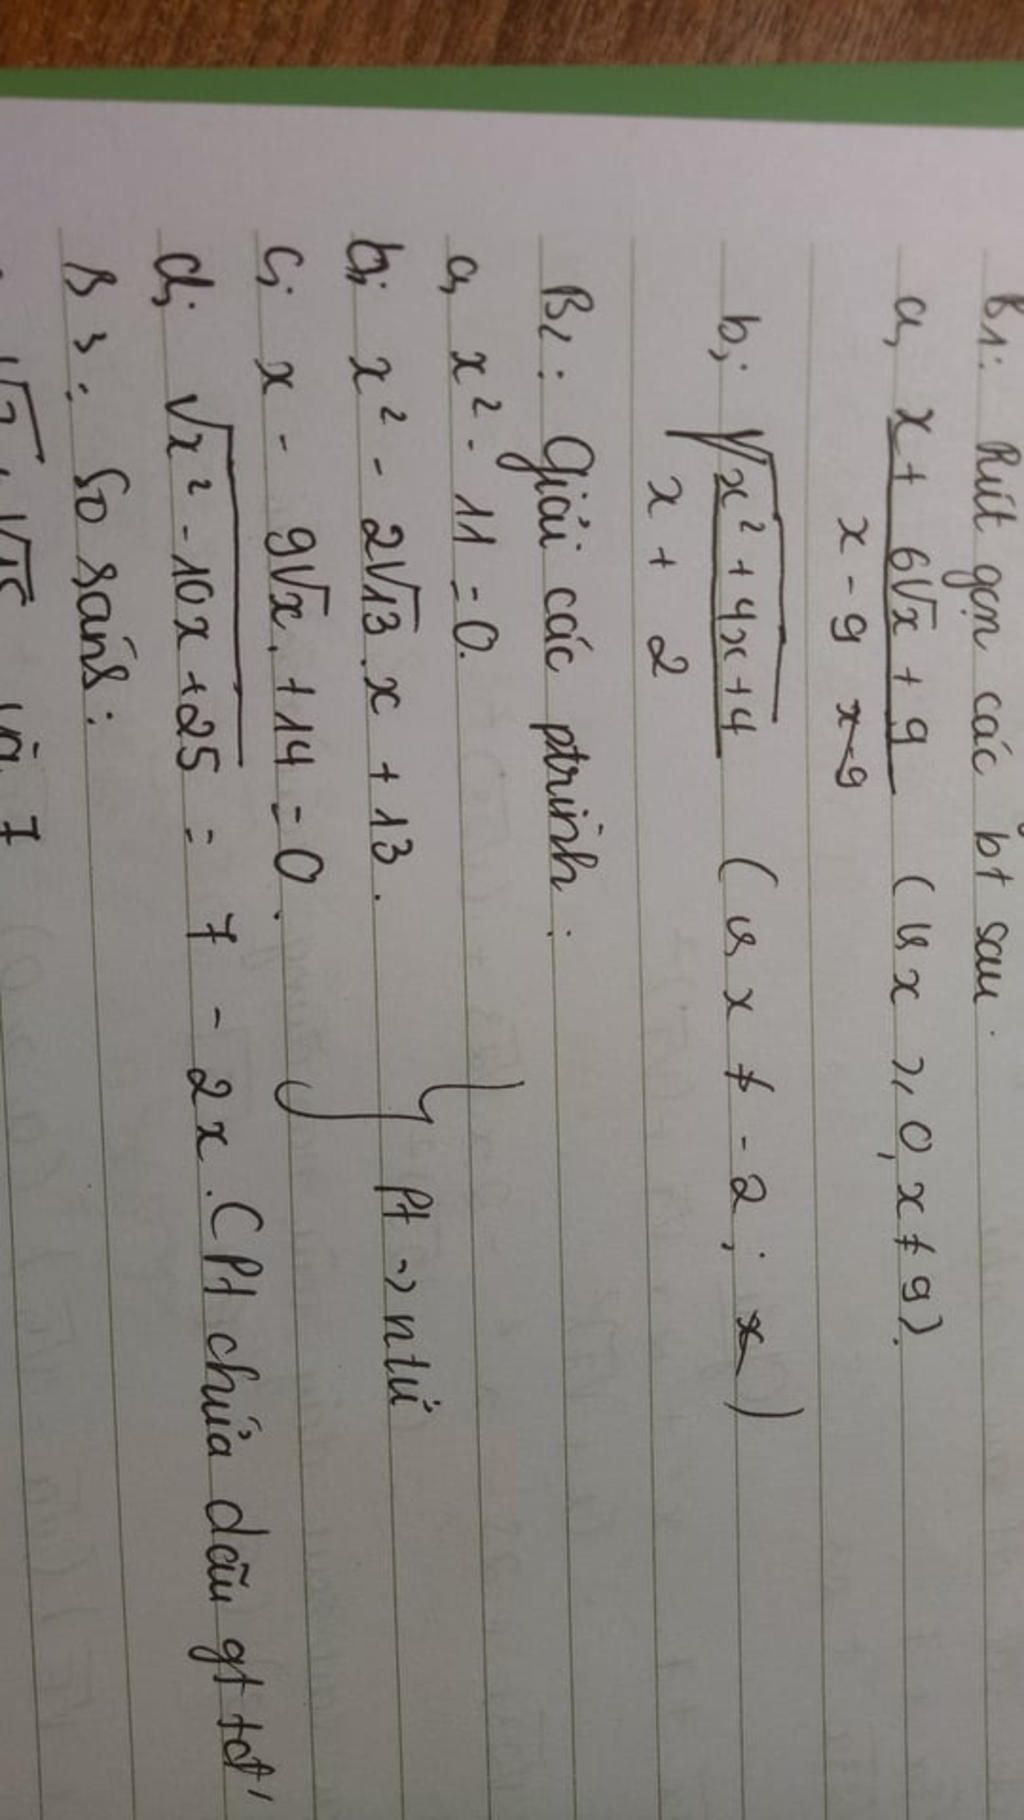 B1: Rút gọn các bt sau.
a, x + 6√x + 9 (với x ≥ 0, x ≠ 9).
x - 9 x-9
b; √x² + 4x + 4 (với x ≠ -2; x)
x + 2
B2: Giải các ptrình:
a, x² - 11 = 0.
b; x² - 2√13.x + 13.
c; x - 9√x. + 14 = 0. } Pt → ntử
d; √x² - 10x + 25 = 7 - 2x. (Pt chứa dấu gt tđ'
B3: So sánh:
và 7